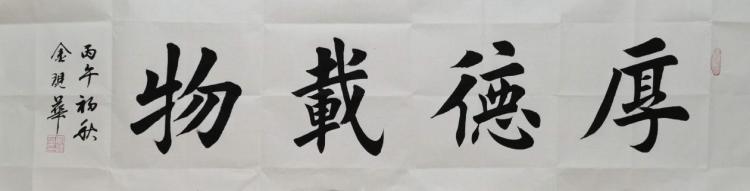 厚德載物
丙午初秋
金現華